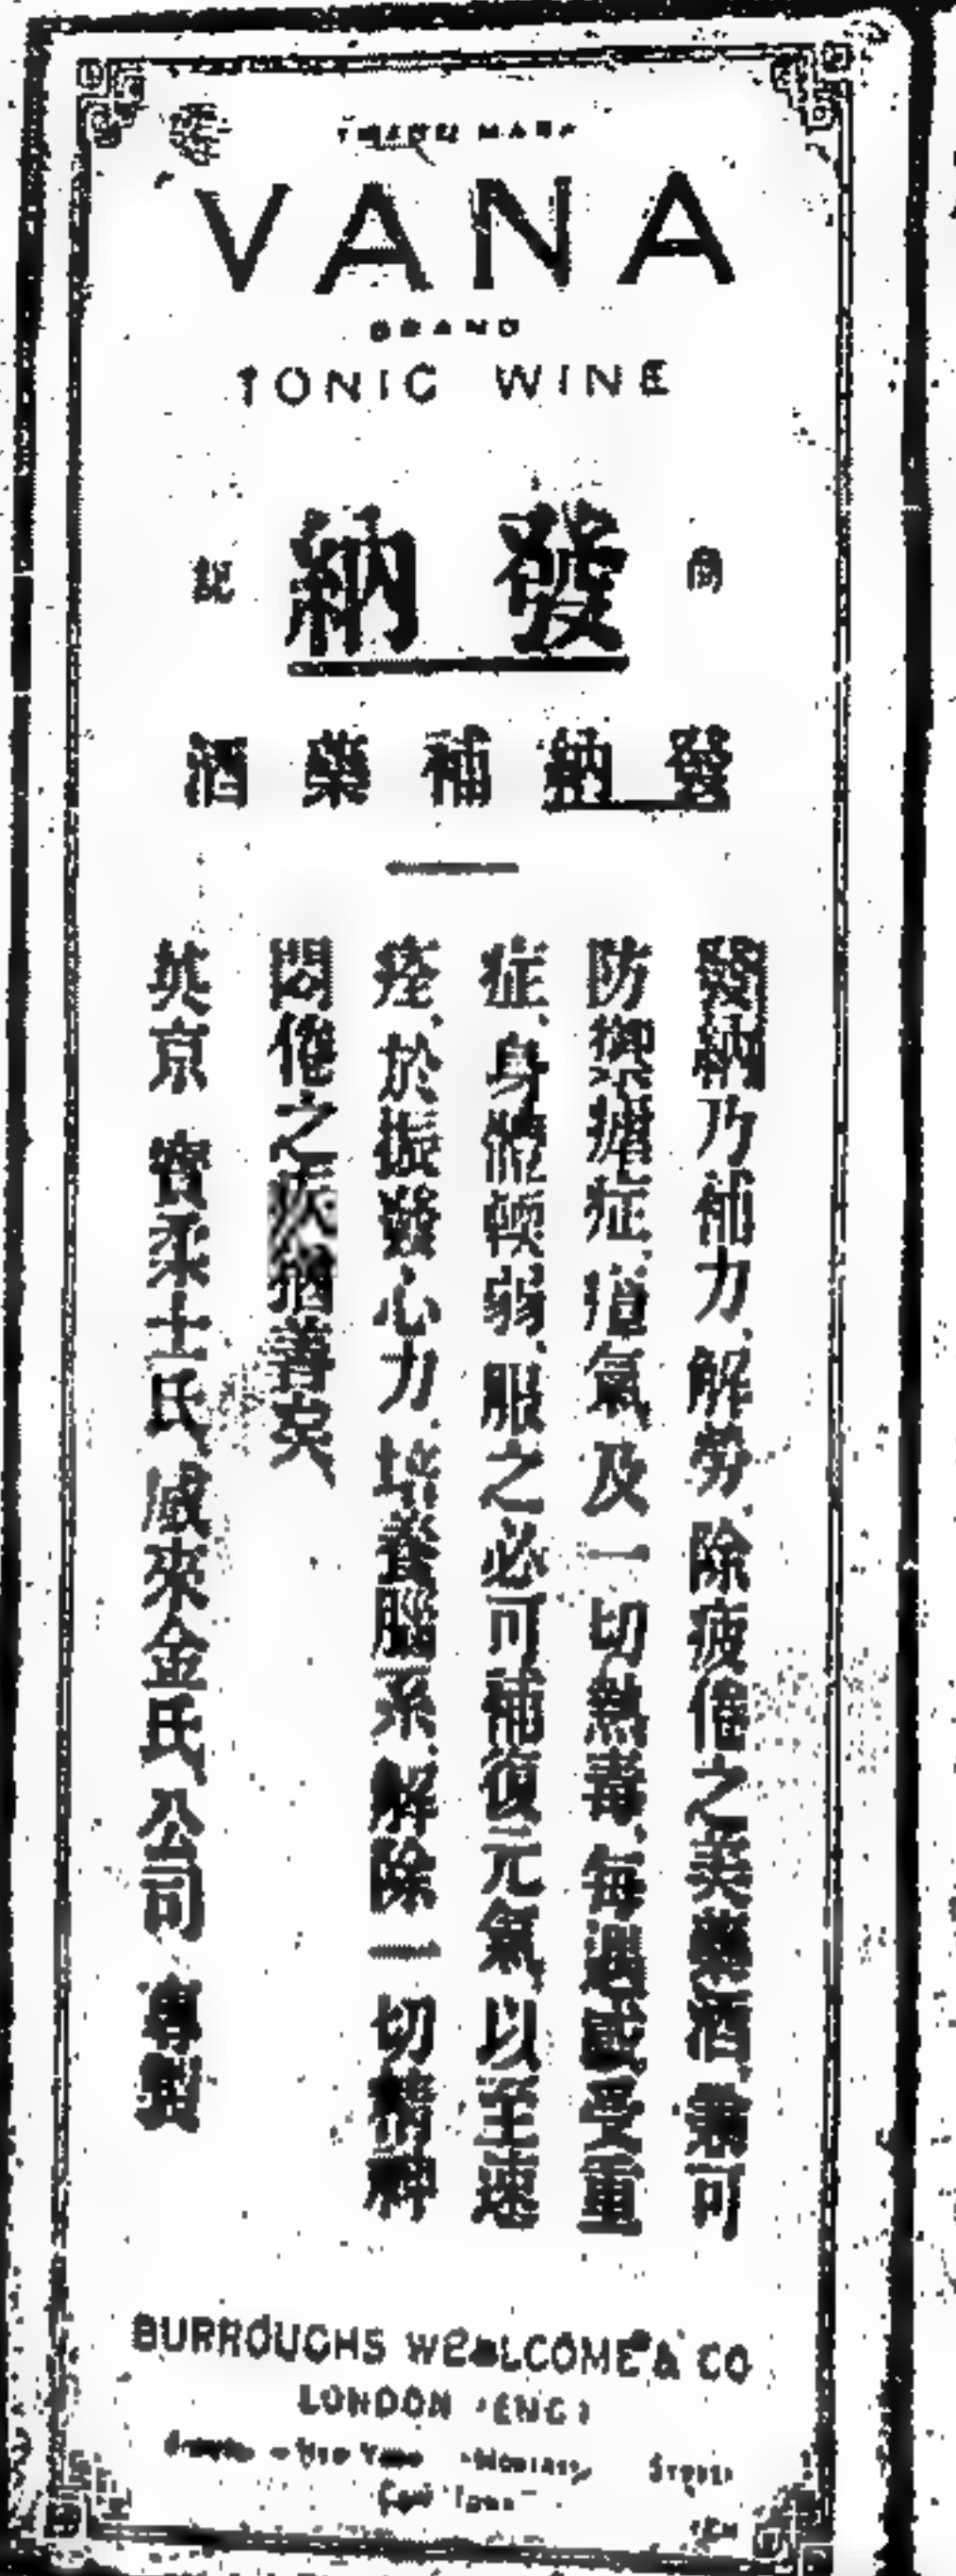 TRADE MARK
VANA
BRAND
TONIC WINE
商 發納 記
發納補藥酒
發納乃補力、解勞、除疲倦之美藥酒、兼可
防禦瘧症、瘴氣及一切熱毒、每遇感受重
症、身體輭弱、服之必可補復元氣、以至速
痊、於振發心力、培養腦系、解除一切精神
悶倦之善矣
英京 寶柔士氏 威來金氏 公司 專製
BURROUGHS WELLCOME & CO
LONDON (ENG)
New York Montreal Sydney
Cape Town